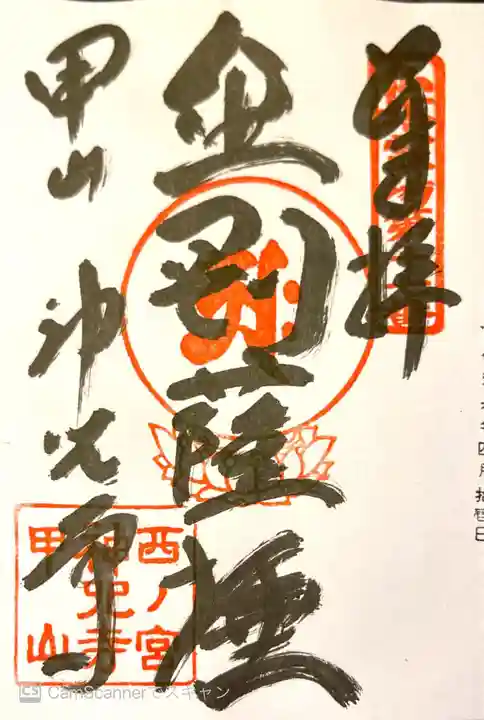 奉拝
金剛薩埵
甲山
神呪寺
西ノ宮
神呪寺
甲山
CS CamScannerでスキャン